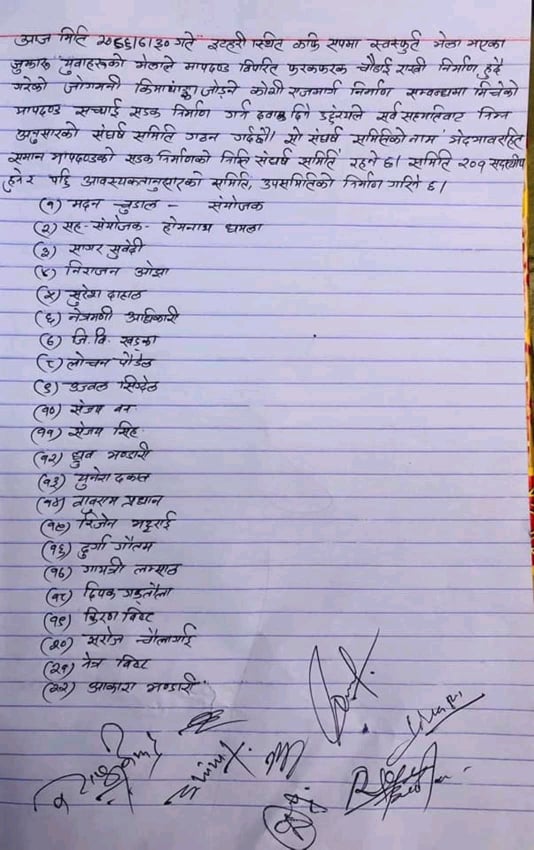 आज मिति २०७७/७/३० गते इटहरी स्थित कफि सपमा स्वस्फुर्त भेला भएका
जुझारु युवाहरूको भेलाले मापदण्ड विपरित फरकफरक चौडाई राखी निर्माण हुदै
गरेको जोगमनी किमाथाङ्का जोड्ने कोशी राजमार्ग निर्माण सम्वन्धमा मिचेको
मापदण्ड सच्याई सडक निर्माण गर्न दवाव दिने उद्देश्यले सर्व सहमतिवाट निम्न
अनुसारको संघर्ष समिति गठन गर्दछौ। सो संघर्ष समितिको नाम 'भेदभावरहित
समान मापदण्डको सडक निर्माणको निम्ति संघर्ष समिति' रहने छ। समिति २०१ सदस्यीय
हुने र पछि आवश्यकतानुसारको समिति, उपसमितिको निर्माण गरिने छ।
(१) मदन चुडाल - संयोजक
(२) सह-संयोजक - होमनाथ धमला
(३) सागर सुवेदी
(४) निराजन ओझा
(५) सुरेश दाहाल
(६) नेत्रमणी अधिकारी
(७) जि.वि. खड्का
(८) लोचन पौडेल
(९) उज्वल सिग्देल
(१०) संजय वन
(११) संजय सिंह
(१२) ध्रुव भण्डारी
(१३) युनेश दकाल
(१४) वावुराम प्रधान
(१५) रिजेन भट्टराई
(१६) दुर्गा गौतम
(१७) गायत्री लम्साल
(१८) दिपक गडतौला
(१९) किरण विष्ट
(२०) सरोज चौलागाई
(२१) नेत्र विष्ट
(२२) आकाश भण्डारी